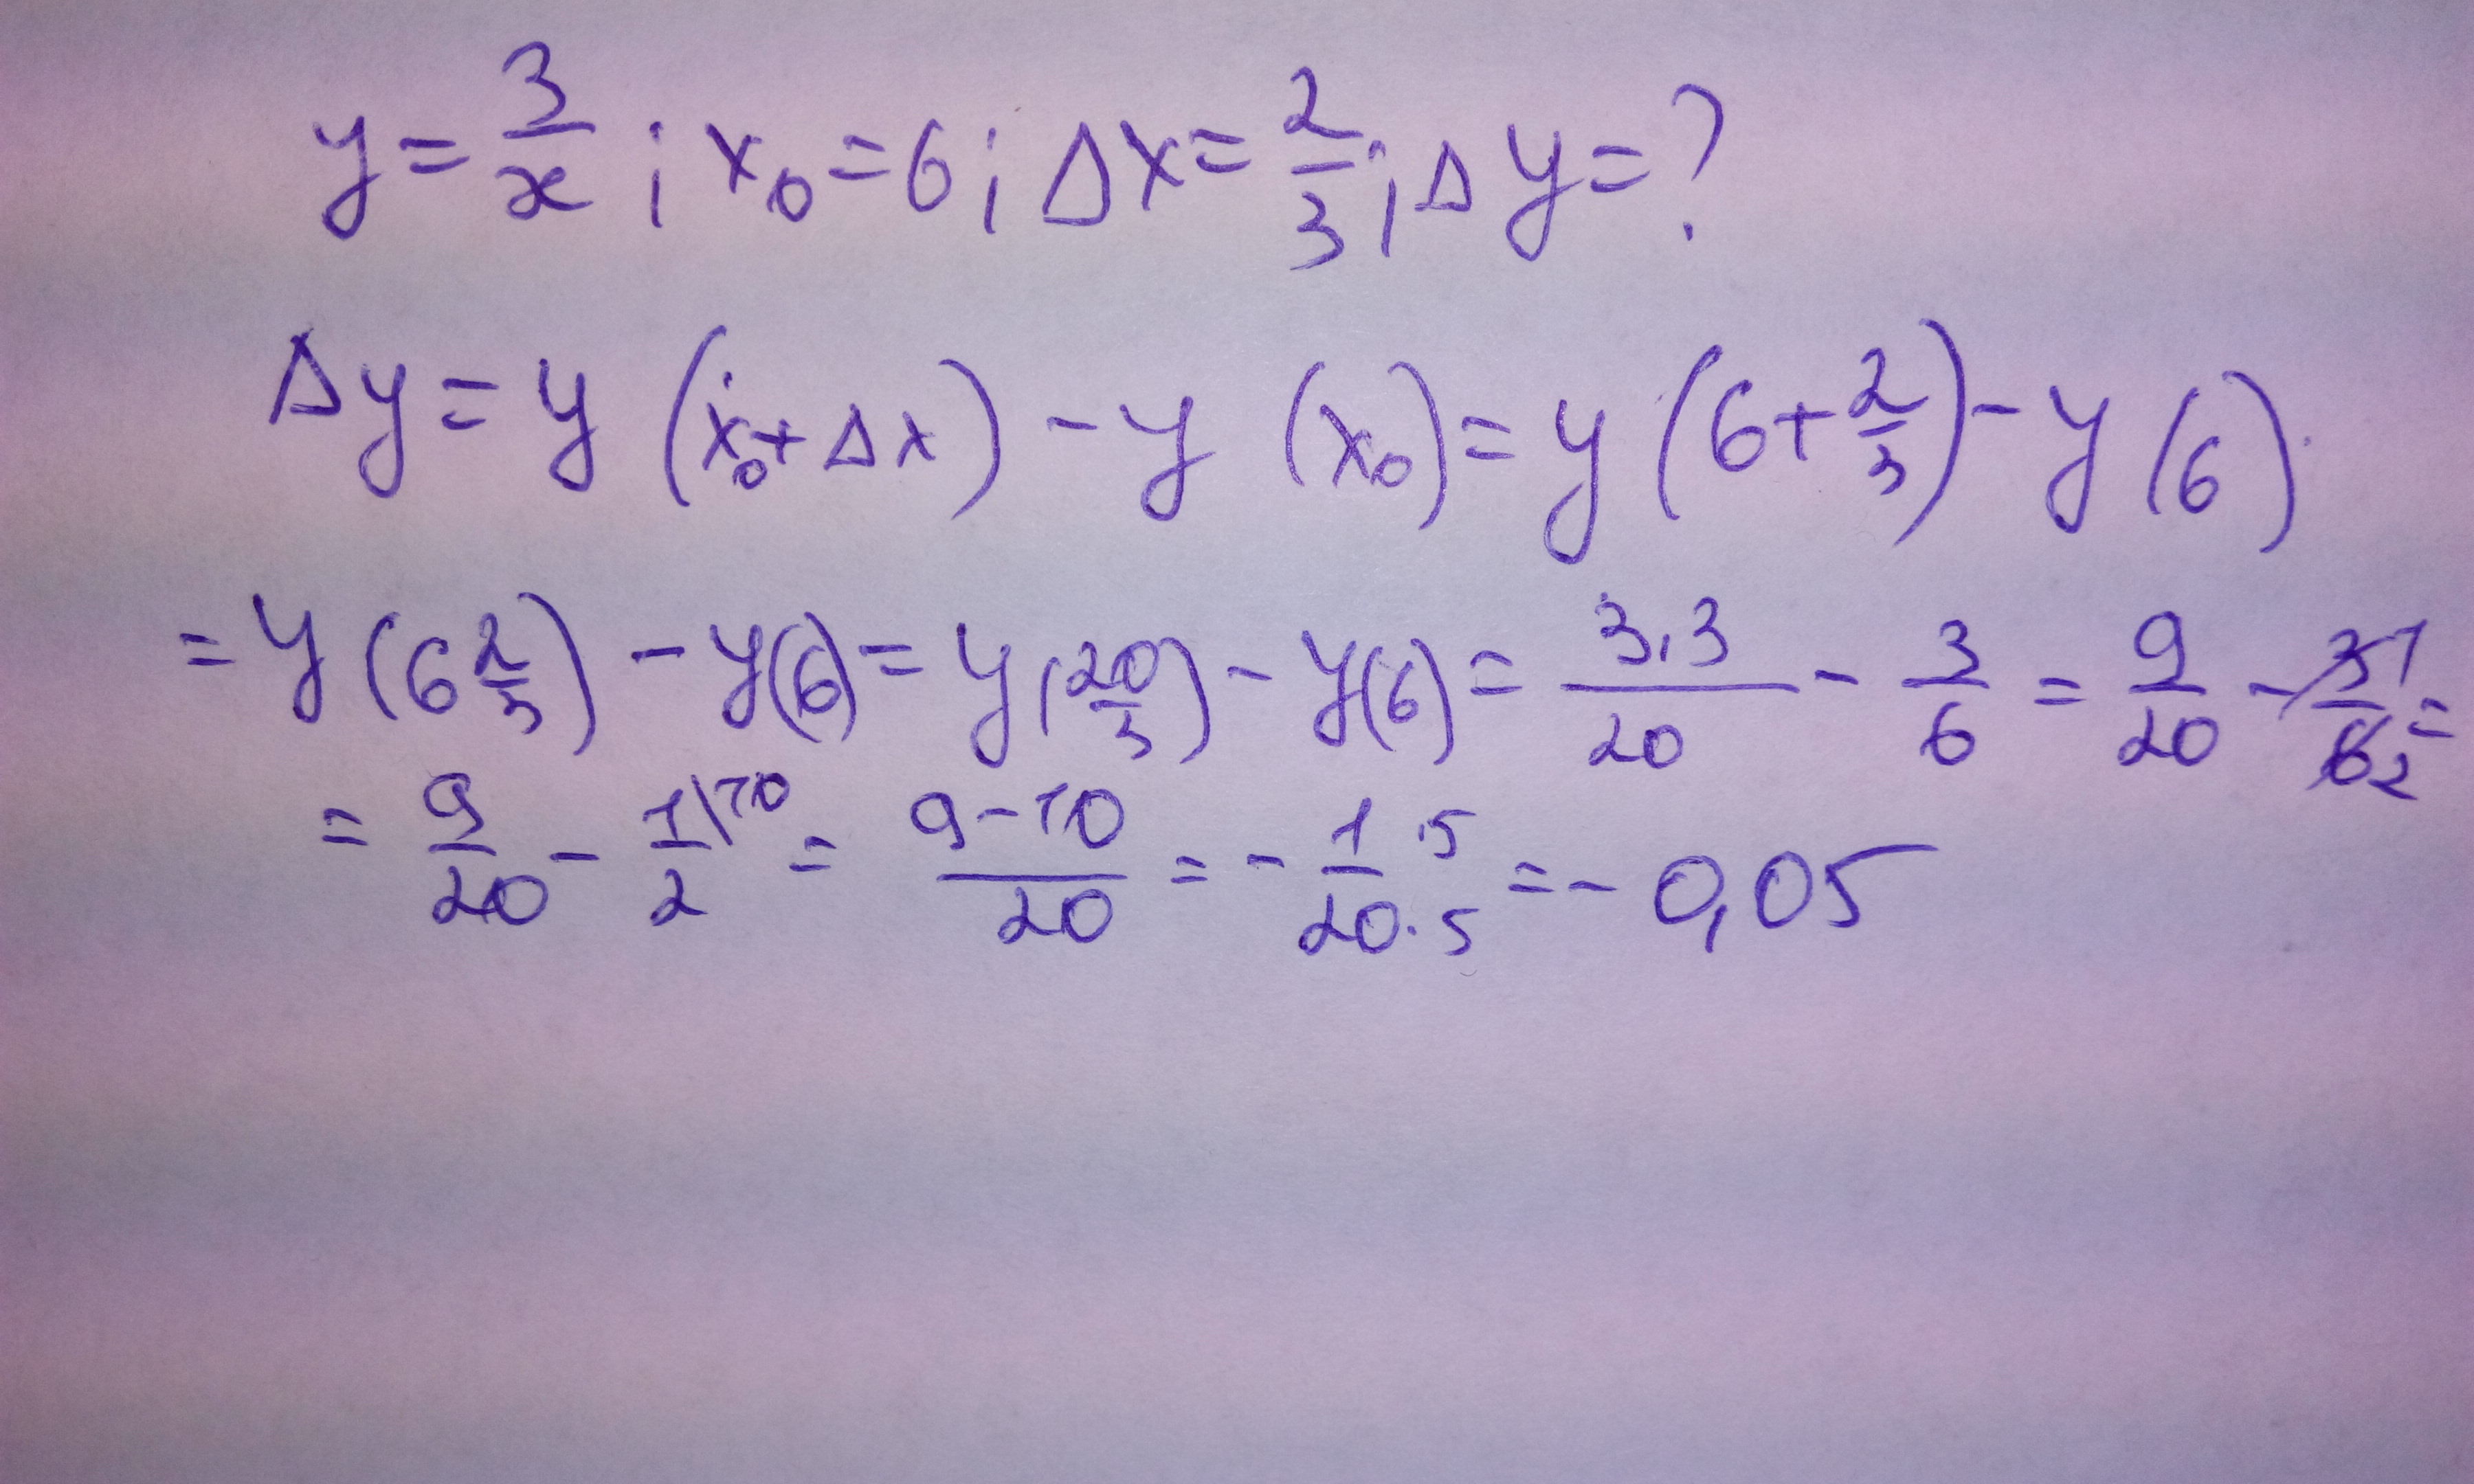 y = 3/x ; x₀ = 6 ; Δx = 2/3 ; Δy = ?
Δy = y (x₀ + Δx) - y (x₀) = y (6 + 2/3) - y (6)
= y (6 2/3) - y(6) = y (20/3) - y(6) = 3·3/20 - 3/6 = 9/20 - 3 1/6 2 =
= 9/20 - 1\10/2 = 9-10/20 = - 1·5/20·5 = - 0,05